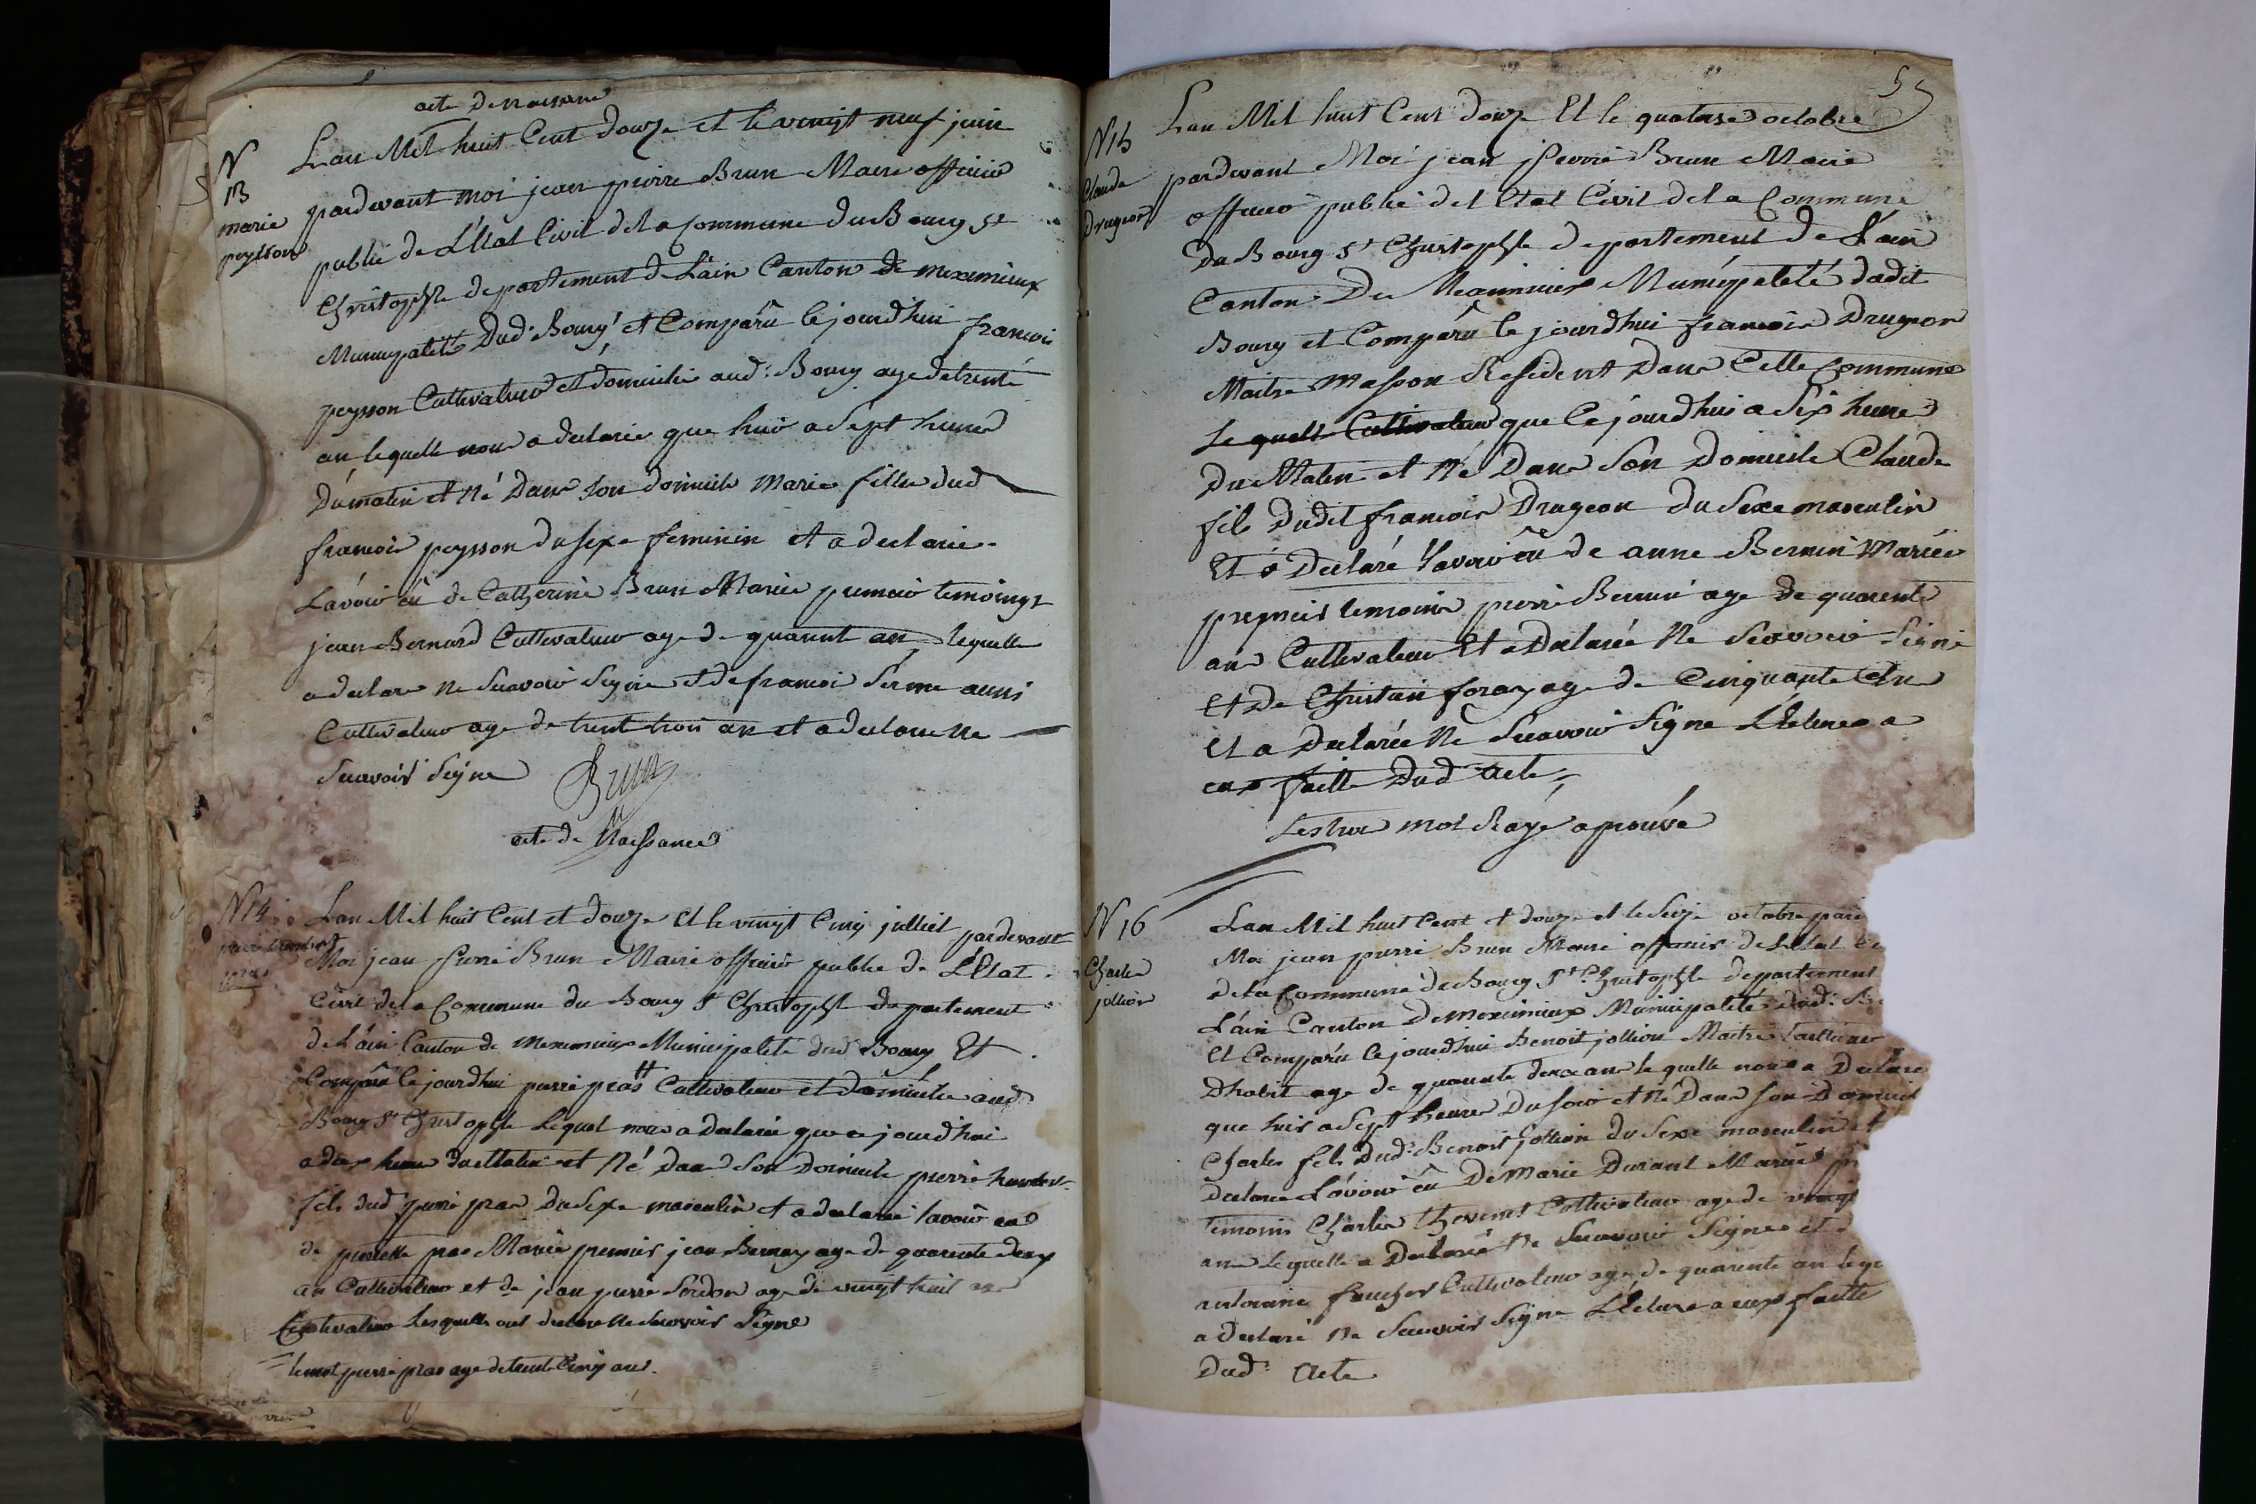 acte de naissance
N
13
marie
peysson
Lan Mil huit Cent douze et le vingt neuf juin
pardevant moi jean pierre Brun Maire officier
public de L'Etat Civil de la Commune du Bourg St
Christophle departement de L'ain Canton de meximieux
Municipalité Dud: Bourg et Comparû cejourdhui francois
peysson Cultivateur et domicilié aud: Bourg age de trente
an lequelle nous a declaree que hier a Sept heures
Dumatin et Né Dans Son domicile Marie fille dud
francois peysson du Sexe feminin et a declarie
Lavoir eû de Catherine Brun Mariée premier temoingt
jean Bernard Cultivateur age de quarent an lequelle
a declare ne Scavoir Signe et de francoi Serme aussi
Cultivateur age de trent trois an et a declare ne
Scavoir Signe
Brun
acte de Naissance
N 14
Lan Mil huit Cent et douze et le vingt Cinq julliet pardevant
Moi jean pierre Brun Maire officier public de L'Etat
Civil de la Commune du Bourg St Christophle departement
de L'ain Canton de Meximieux Municipalité dud Bourg Et
Comparû cejourdhui pierre pras Cultivateur et domicilie aud
Bourg St Christophle Lequel nous a declarée que ce jourdhui
a deux heure du Matin et Né Dans Son Domicile pierre
fils dud pierre pras du Sexe masculin et a declaree lavoir eu
de pras Mariée premier jean age de quarante deux
an Cultivateur et de jean pierre age de vingt huit an
Cultivateur Lesquelle ont declare ne Scavoir Signe
lemot pierre pras age de trente Cinq an.
55
N 15
Claude
Drugeon
Lan Mil huit Cent Douze Et le quatorse octobre
pardevant Moi jean pierre Brun Maire
officier public de l Etat Civil de la Commune
Du Bourg St Christophle departement de L'ain
Canton De Meximieux Municipalité dudit
Bourg et Comparû ce jourdhui francois Drugeon
Maitre Masson Resident Dans Cette Commune
Le quell Cultivateur que Ce jourdhui a Six heure
Du Matin et Né Dans Són Domicile Claude
fils Dudit francois Drugeon du Sexe masculin
Et a Declaré Lavoir eû de anne Bernin Mariée
premier temoins pierre age de quarente
an Cultivateur Et a Declarée Ne Scavoir Signe
Et De Christin foray age de Cinquante Un
Et a Declarée Ne Scavoir Signe LLeture a
eux faitte Dud: acte
Les trois mot Rayé aprouvé
N 16
Charle
jollion
Lan Mil huit Cent et douze et le Seize octobre par
Moi jean pierre Brun Maire officier de L Etat
de la Commune de Bourg St Christophle departement
L'ain Canton De Meximieux Municipalité dud:
Et Comparu Cejourdhui Benoit jollion Maitre tailleur
Dhabit age de quarante deux an le quelle nous a Declare
que hier a Sept heures Du Soir et Né Dans Son Domicil
Charles fils Dud: Benoit jollion du Sexe masculin et
Declare Lávoir eû De Marie Durant Mariée
temoins Charles thevenet Cultivateur age de vingt
an Lequelle a Declarée Ne Scavoir Signe et d
antoine foucher Cultivateur age de quarente an
a Declaré Ne Scavoir Signe LLeture a eux faitte
Dud: Acte